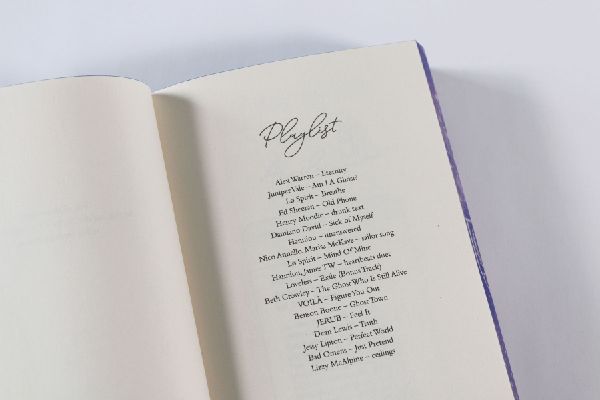 Playlist
Alex Warren – Eternity
Juniper Vale – Am I A Ghost?
La Spirit – Breathe
Ed Sheeran – Old Phone
Henry Moodie – drunk text
Damiano David – Sick of Myself
Hanniou – unanswered
Nico Annello, Marisa McKaye – sailor song
La Spirit – Mind Of Mine
Hanniou, James TW – heartbeats duet
Loveless – Exile (Bonus Track)
Beth Crowley – The Ghost Who Is Still Alive
VOILÀ – Figure You Out
Benson Boone – Ghost Town
JERUB – Feel It
Dean Lewis – Truth
Jessy Lipton – Perfect World
Bad Omens – Just Pretend
Lizzy McAlpine – ceilings